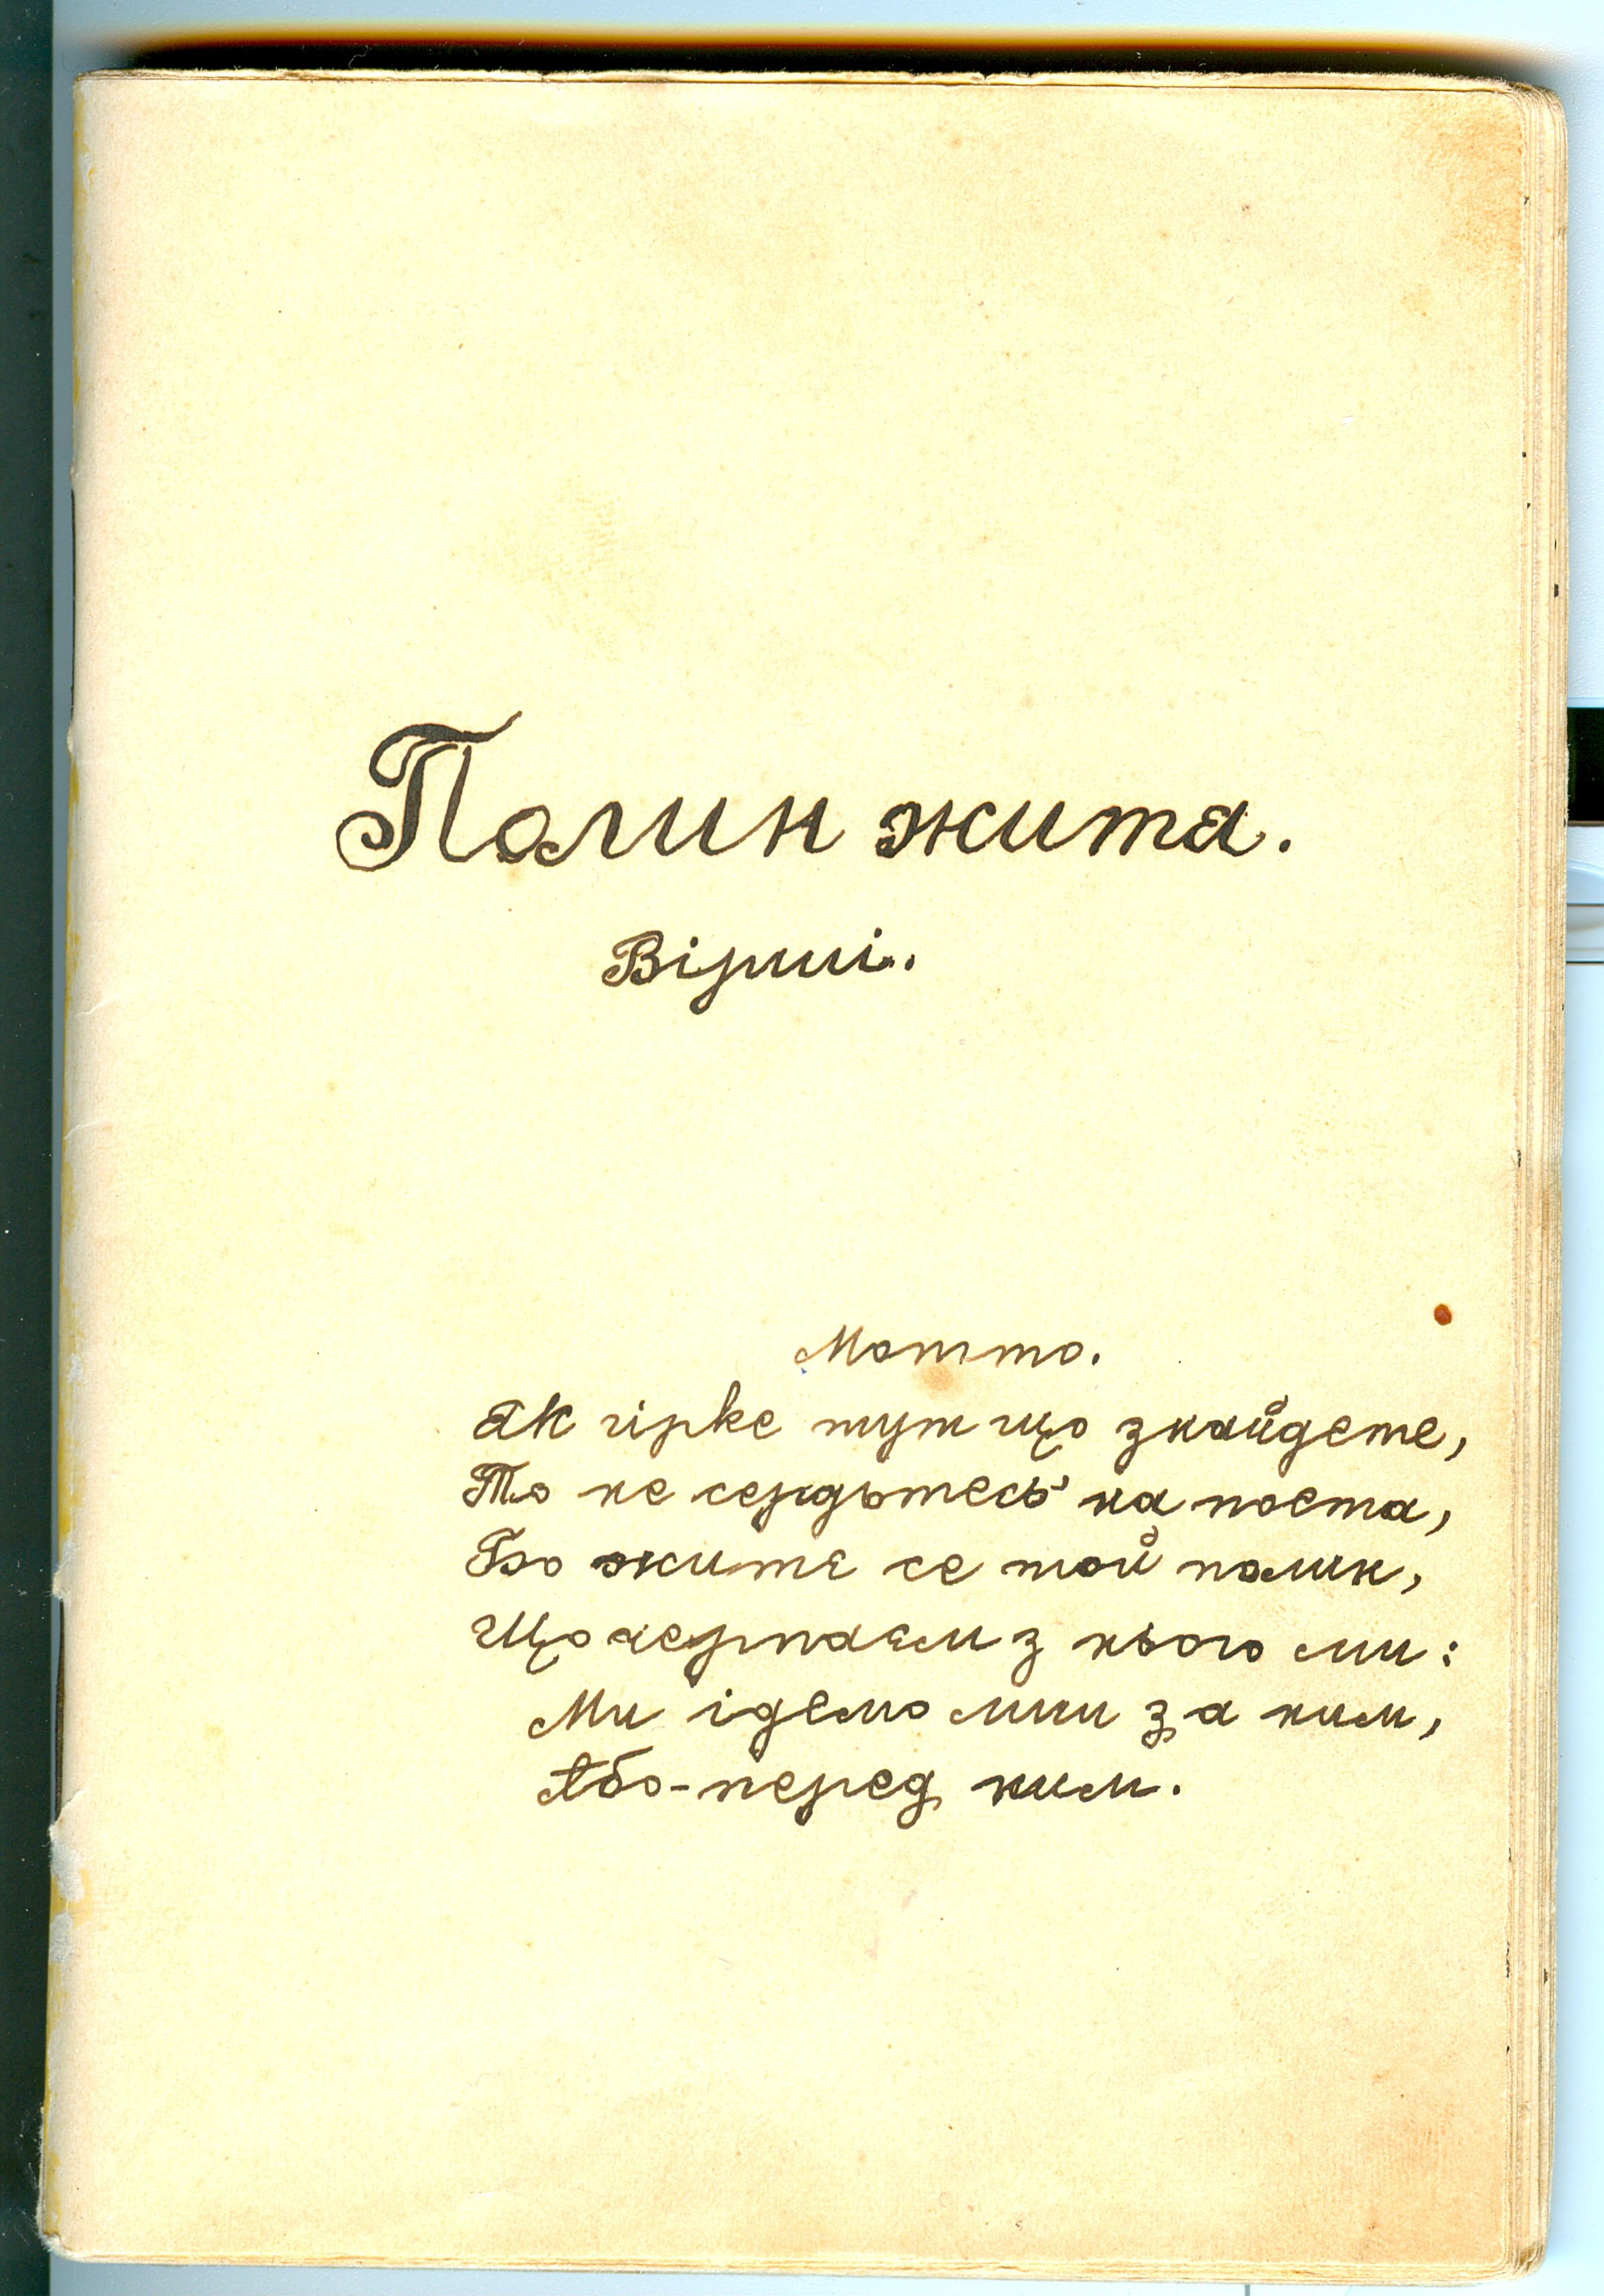 Полин житя.
Вірші.
Мотто.
Як гірке тут що знайдете,
То не сердьтесь на поета,
Бо житє се той полин,
Що черпаєм з нього ми:
Ми ідемо ми за ним,
Або-перед ним.